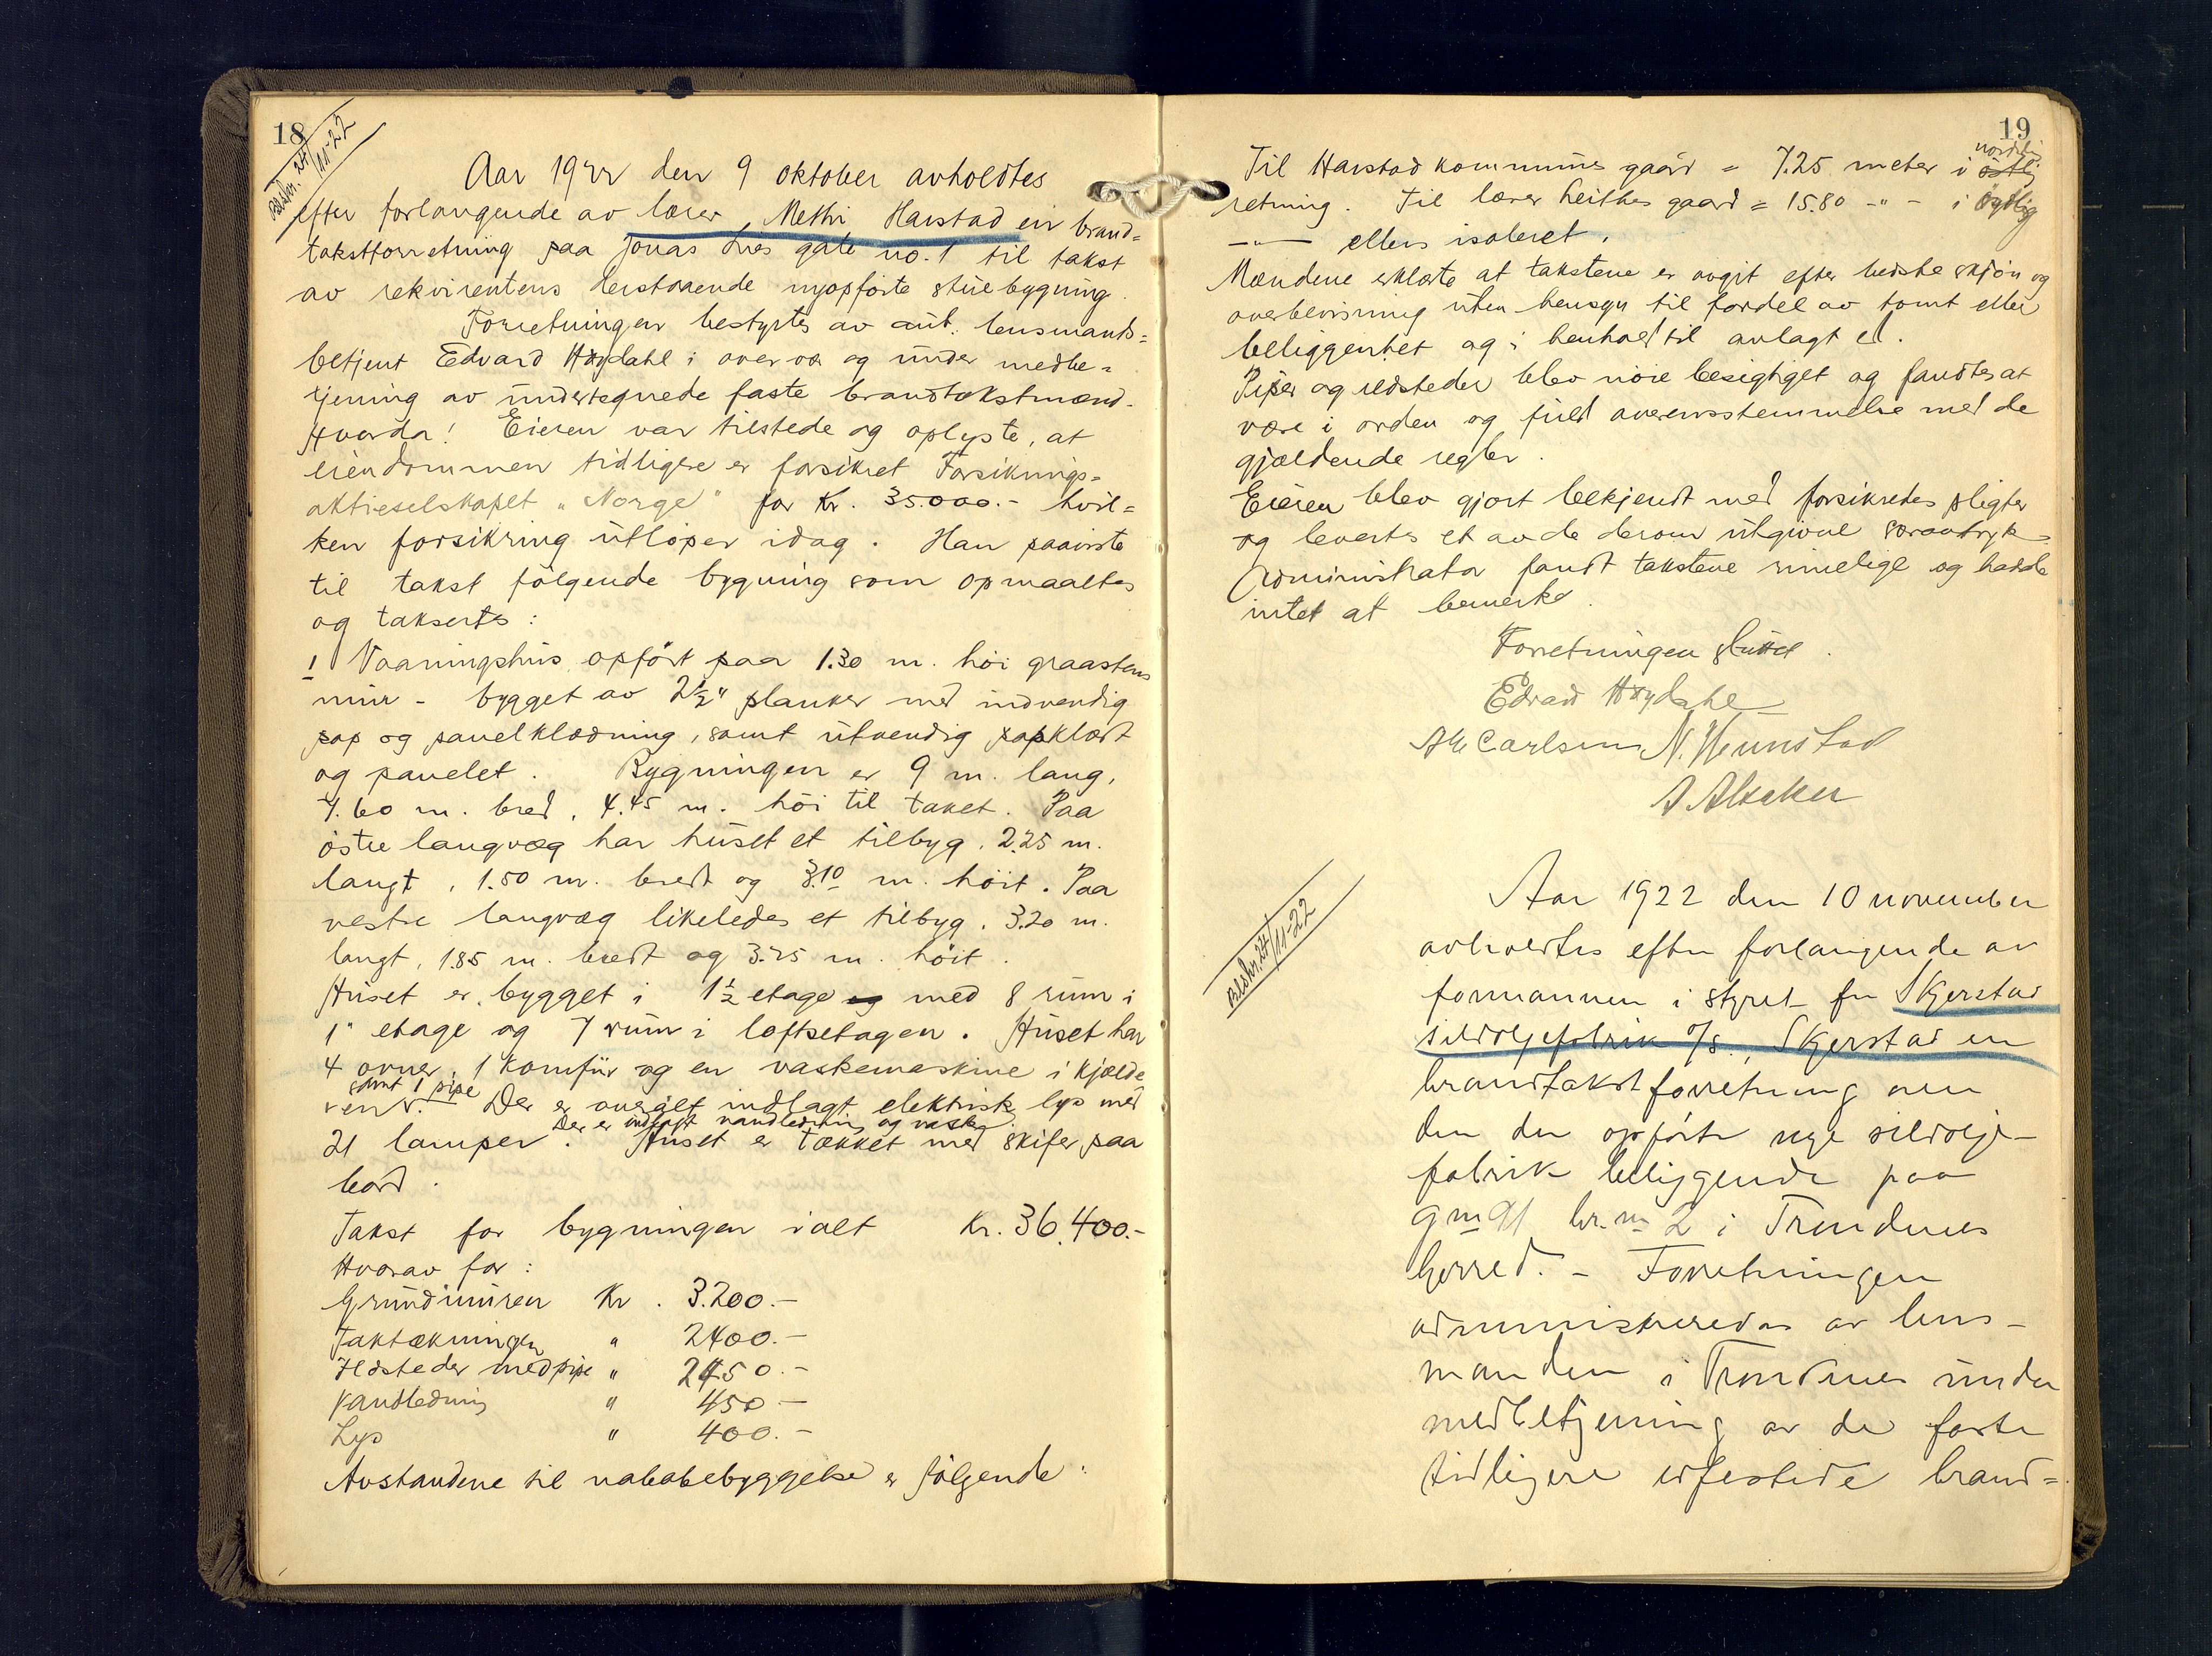 18
24/11-22
Aar 1922 den 9 oktober avholdtes
efter forlangende av lærer Methi Harstad ein brand=
takstforretning paa Jonas Lies gate no. 1 til takst
av rekvirentens derstaaende nyopførte stuebygning.
Forretningen bestyrtes av aut. lensmands=
betjent Edvard Høydahl i overvær og under medbe=
tjening av undertegnede faste brandtakstmænd.
Hvorda! Eieren var tilstede og oplyste, at
eiendommen tidligere er forsikret Forsiknings=
aktieselskapet "Norge" for Kr. 35.000.- hvil=
ken forsikring utløper idag. Han paaviste
til takst følgende bygning som opmaaltes
og taksertes:
1 Vaaningshus opført paa 1.30 m. høi graastens
mur - bygget av 2½" planker med indvendig
pap og panelklædning, samt utvendig papklædt
og panelet. Bygningen er 9 m. lang,
7.60 m. bred, 4.45 m. høi til taket. Paa
østre langvæg har huset et tilbyg, 2.25 m.
langt, 1.50 m. bredt og 3.10 m. høit. Paa
vestre langvæg likeledes et tilbyg. 3.20 m.
langt, 1.85 m. bredt og 3.25 m. høit.
Huset er bygget i 1½ etage og med 8 rum i
1" etage og 7 rum i loftsetagen. Huset har
4 ovner, 1 komfür og en vaskemaskine i kjælde
samt 1 pipe
ren. Der er overalt indlagt elektrisk lys med
Der er indlagt vandledning og vaske.
21 lamper. Huset er tækket med skifer paa
bord.
Takst for bygningen ialt Kr. 36.400.-
Hvorav for:
Grundmuren Kr. 3.200.-
Taktækningen " 2400.-
Ildsteder med pipe " 2450.-
Vandledning " 450-
Lys " 400.-
Avstandene til nabobebyggelse er følgende:
19
nordlig
Til Harstad kommunes gaard = 7.25 meter i østlig
retning. Til lærer Leithes gaard = 15.80 -"- i sydlig
-"- ellers isoleret.
Mændene erklærte at takstene er avgit efter bedste skjøn og
overbevisning uten hensyn til fordel av tomt eller
beliggenhet og i henhold til avlagt ed.
Piper og ildsteder blev nøie besigtiget og fandtes at
være i orden og fuld overensstemmelse med de
gjældende regler.
Eieren blev gjort bekjendt med forsikredes pligter
og levertes et av de derom utgivne særavtryk.
Administrator fandt takstene rimelige og hadde
intet at bemerke.
Forretningen sluttet.
Edvard Høydahl
Carlsen N. Hunstad
A. Alsaker
24/11-22
Aar 1922 den 10 november
avholdtes efter forlangende av
formannen i styret for Skjerstad
sildoljefabrik A/S., Skjerstad en
brandtakstforretning over
den der opførte nye sildolje-
fabrik beliggende paa
gno 91 br.no 2 i Trondenes
herred. - Forretningen
administreredes av lens-
manden i Trondenes under
medbetjening av de faste
tidligere edfestede brand=